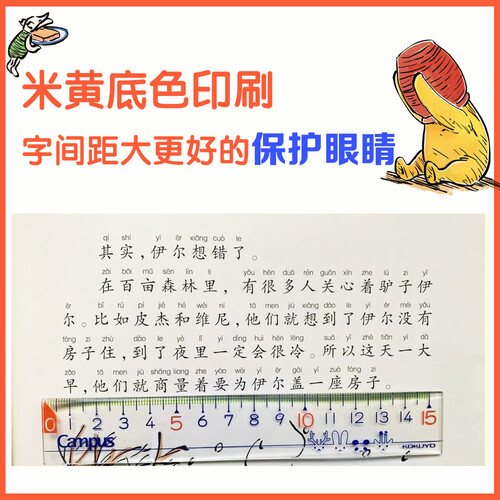 米黄底色印刷
字间距大更好的保护眼睛
qí shí yī ěr xiǎng cuò le
其实,伊尔想错了。
zài bǎi mǔ sēn lín lǐ yǒu hěn duō rén guān xīn zhe lǘ zi yī
在百亩森林里,有很多人关心着驴子伊
ěr bǐ rú pí jié hé wéi ní tā men jiù xiǎng dào le yī ěr méi yǒu
尔。比如皮杰和维尼,他们就想到了伊尔没有
fáng zi zhù dào le yè lǐ yī dìng huì hěn lěng suǒ yǐ zhè tiān yī dà
房子住,到了夜里一定会很冷。所以这天一大
zǎo tā men jiù shāng liang zhe yào wèi yī ěr gài yī zuò fáng zi
早,他们就商量着要为伊尔盖一座房子。
0 1 2 3 4 5 6 7 8 9 10 11 12 13 14 15
Campus KOKUYO